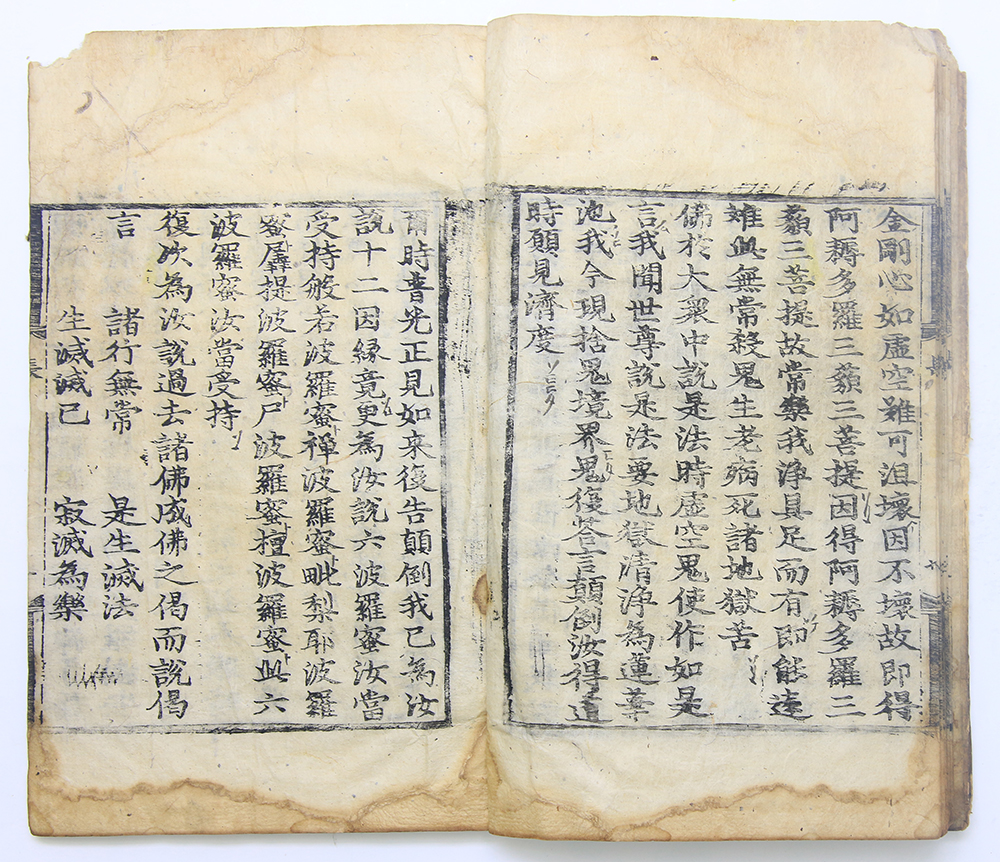 金剛心如虛空難可沮壞因不壞故即得
阿耨多羅三藐三菩提因得阿耨多羅三
藐三菩提故常樂我淨具足而有即能遠
離此無常殺鬼生老病死諸地獄苦
佛於大衆中說是法時虛空鬼使作如是
言我聞世尊說是法要地獄清淨為蓮華
池我今現捨鬼境界鬼復荅言顛倒汝得道
時願見濟度
爾時普光正見如来復告顛倒我已為汝
說十二因縁竟更為汝說六波羅蜜汝當
受持般若波羅蜜禪波羅蜜毗梨耶波羅
蜜羼提波羅蜜尸波羅蜜檀波羅蜜此六
波羅蜜汝當受持
復次為汝說過去諸佛成佛之偈而說偈
言　諸行無常　是生滅法
生滅滅已　寂滅為樂